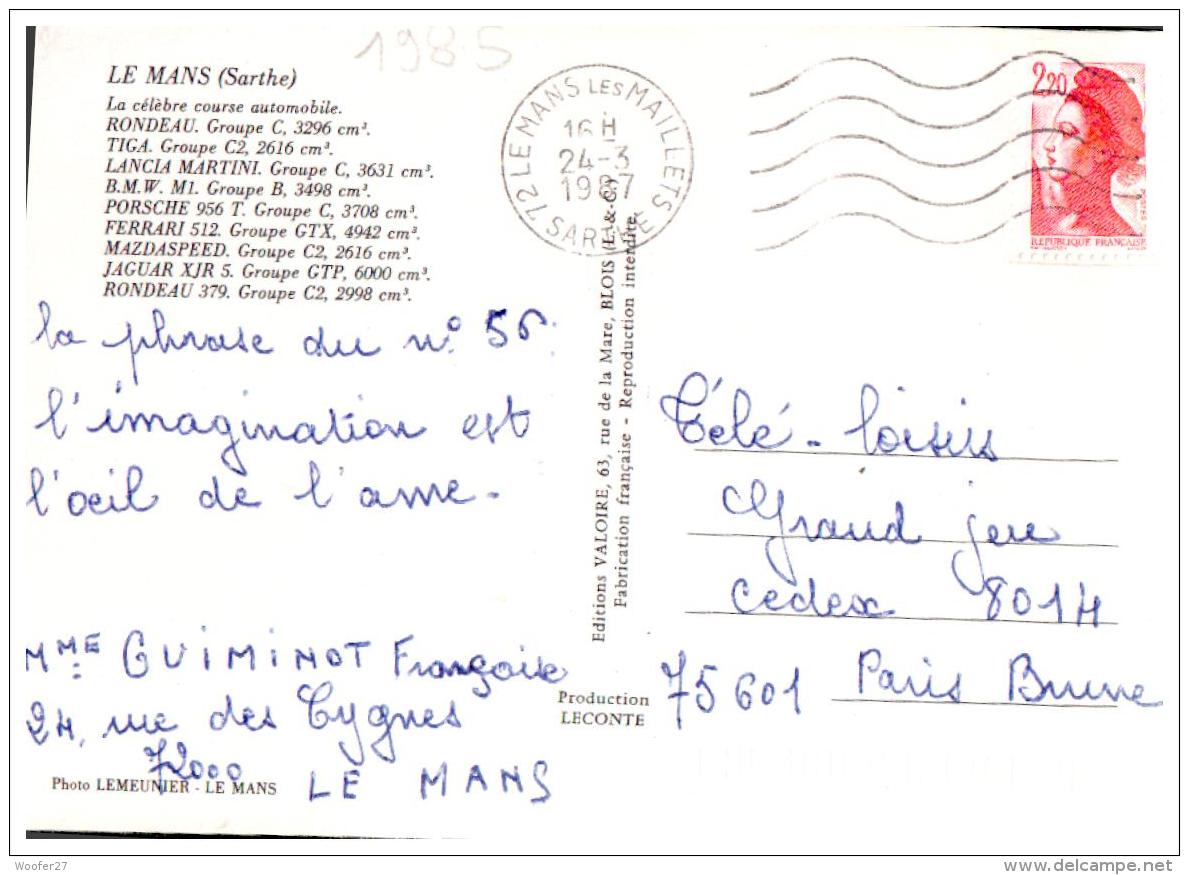 1985
LE MANS (Sarthe)
La célèbre course automobile.
RONDEAU. Groupe C, 3296 cm³.
TIGA. Groupe C2, 2616 cm³.
LANCIA MARTINI. Groupe C, 3631 cm³.
B.M.W. M1. Groupe B, 3498 cm³.
PORSCHE 956 T. Groupe C, 3708 cm³.
FERRARI 512. Groupe GTX, 4942 cm³.
MAZDASPEED. Groupe C2, 2616 cm³.
JAGUAR XJR 5. Groupe GTP, 6000 cm³.
RONDEAU 379. Groupe C2, 2998 cm³.
la phrase du n° 56:
l'imagination est
l'œil de l'ame.
MME GUIMINOT Françoise
24, rue des Cygnes
72000 LE MANS
Photo LEMEUNIER - LE MANS
72 LE MANS LES MAILLETS
16 H
24-3
1987
SARTHE
Editions VALOIRE, 63, rue de la Mare, BLOIS (L.-&-C.)
Fabrication française - Reproduction interdite
Production
LECONTE
2,20
POSTES
REPUBLIQUE FRANÇAISE
Télé-loisirs
Grand jeu
cedex 8014
75601 Paris Brune
Woofer27
delcampe.net